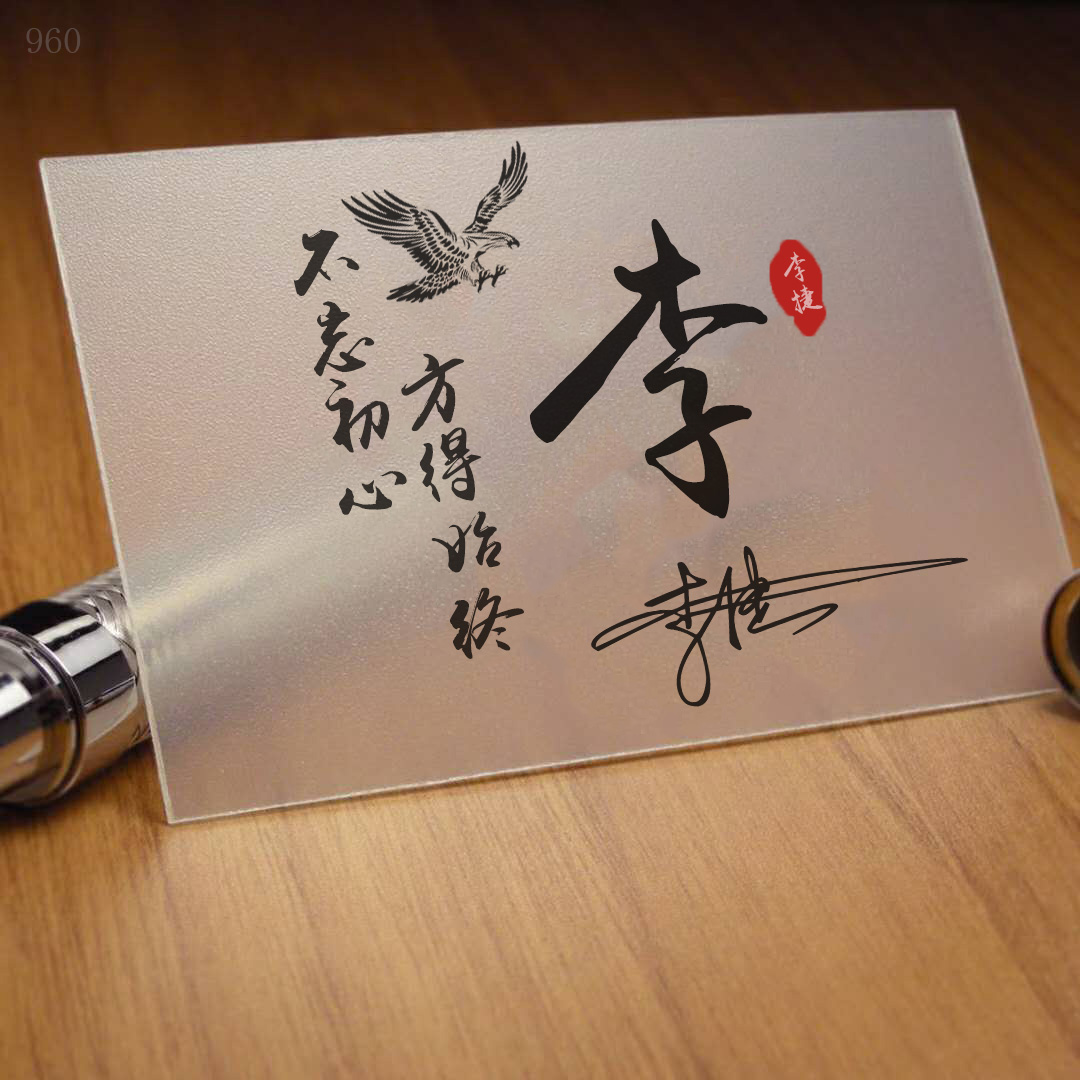 960
不忘初心
方得始终
李
李捷
李捷